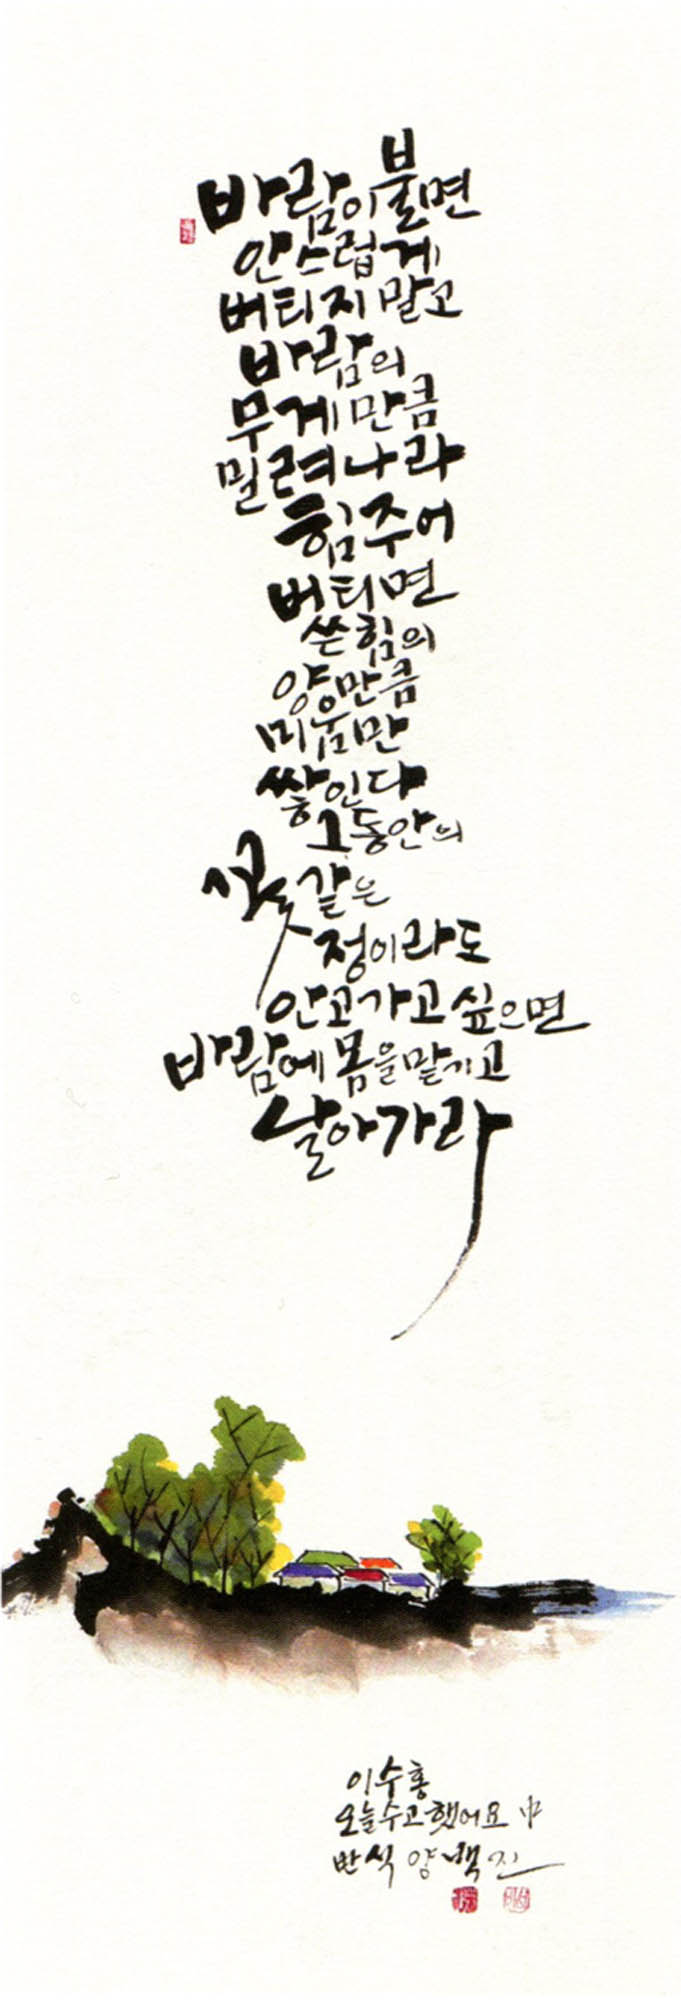 바람이 불면
안스럽게
버티지 말고
바람의
무게만큼
밀려나라
힘주어
버티면
쓴 힘의
양만큼
미움만
쌓인다
그동안의
꽃같은
정이라도
안고가고 싶으면
바람에 몸을 맡기고
날아가라
이수홍
오늘수고했어요 中
반석 양백진